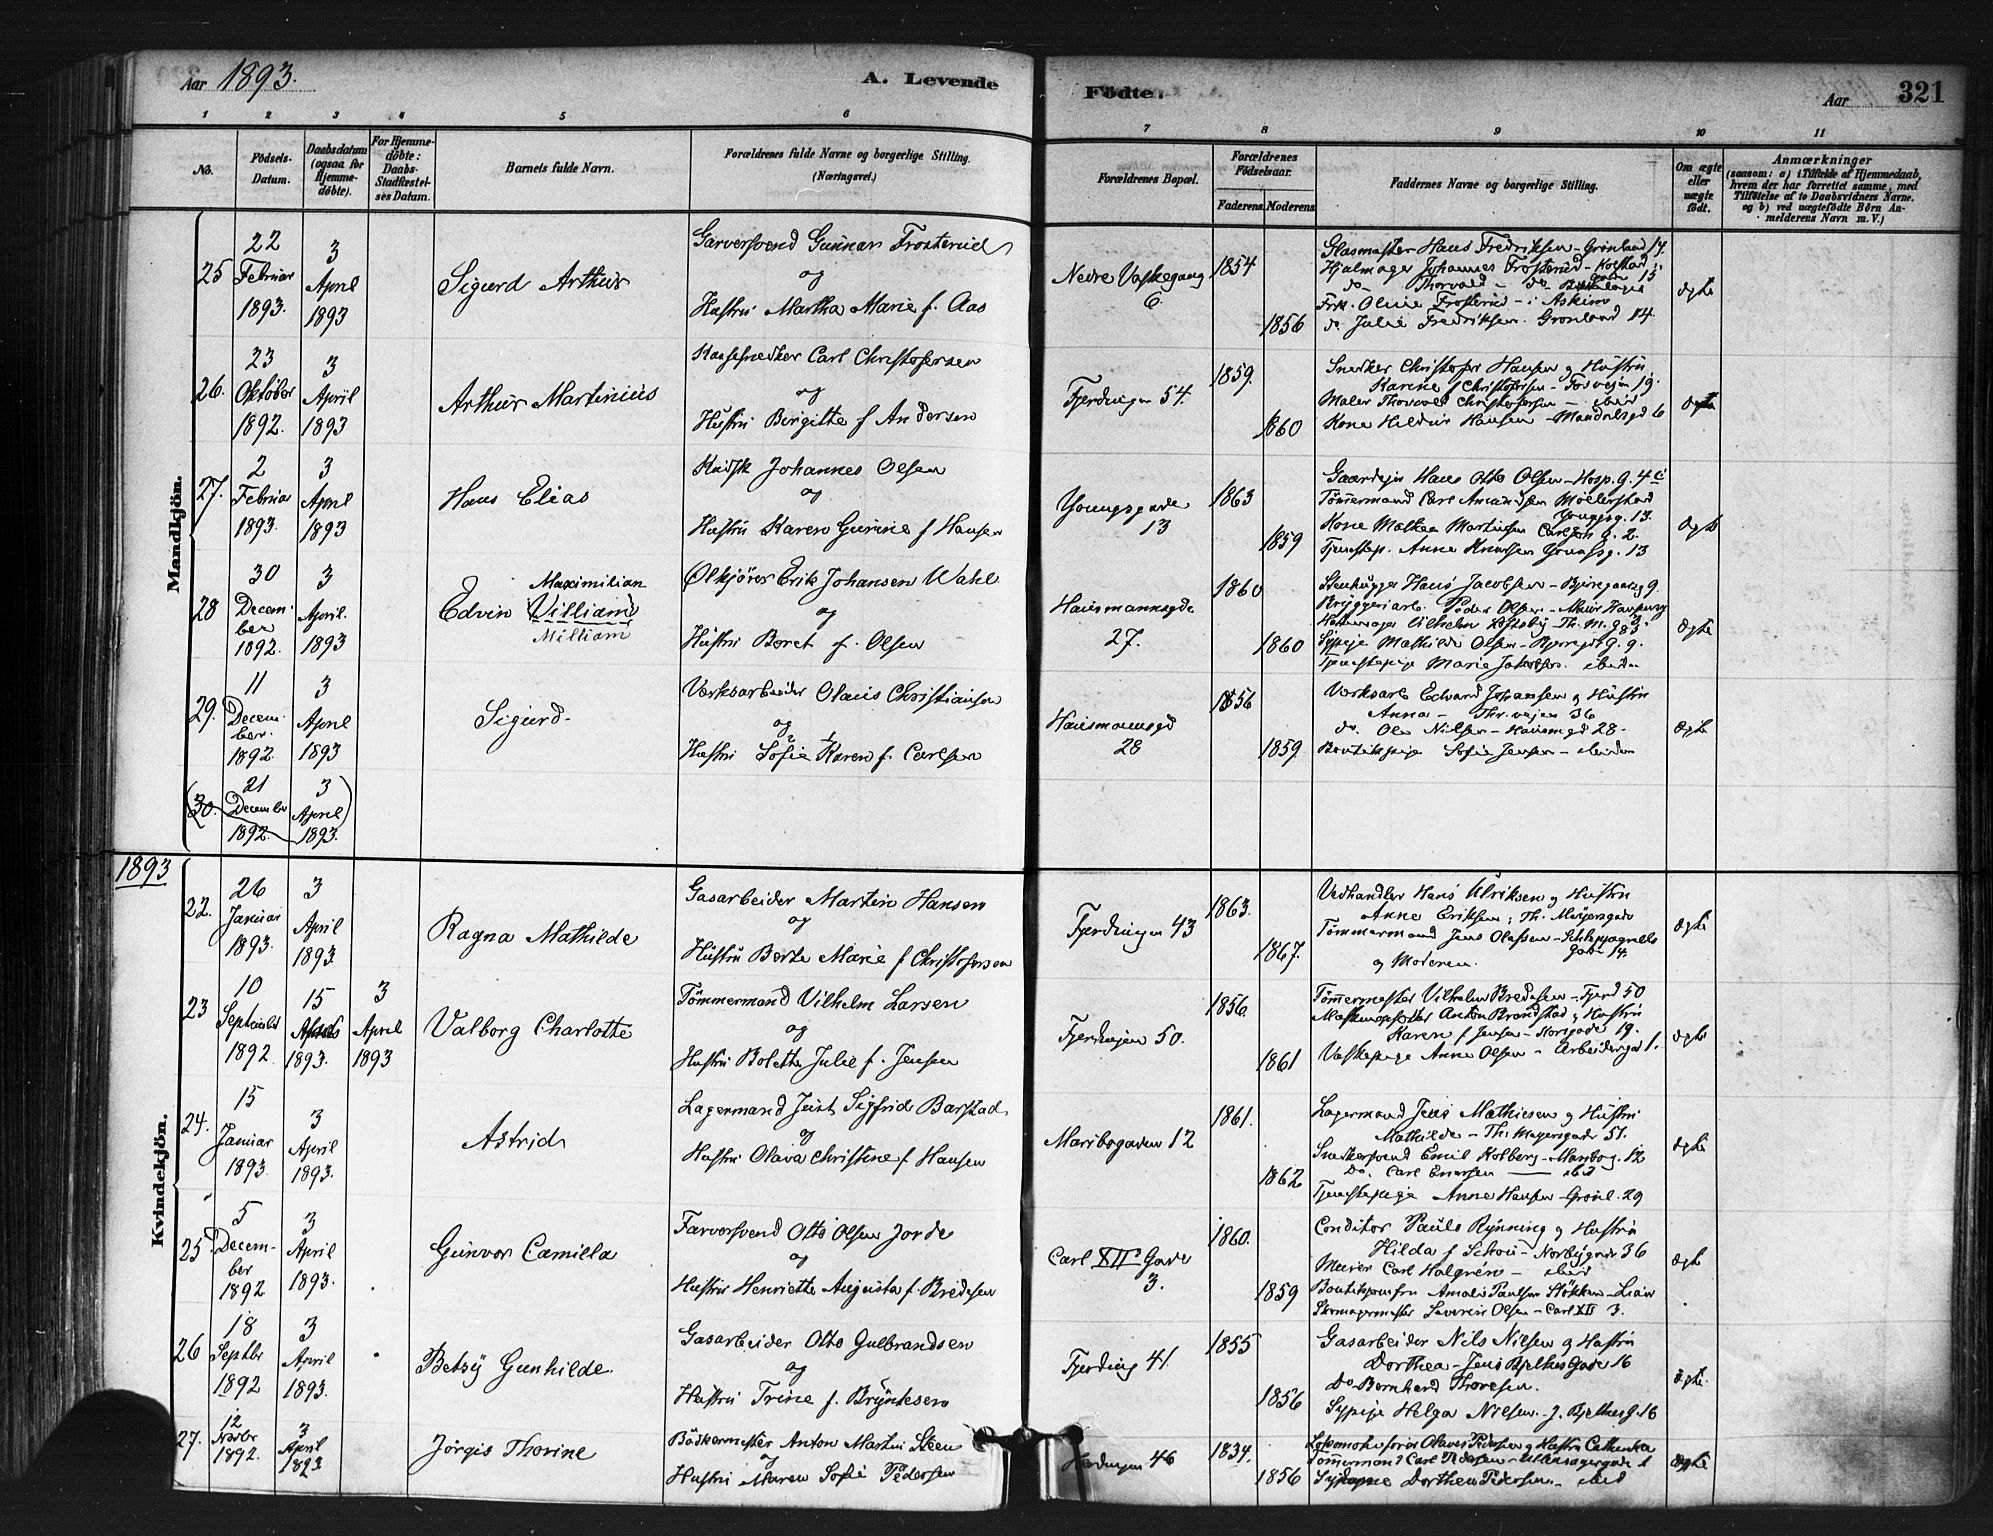 Aar 1893.
A. Levende
Födte.
Aar
321
1 2 3 4 5 6 7 8 9 10 11
No.
Födsels-Datum.
Daabsdatum (ogsaa for Hjemme-döbte).
For Hjemme-döbte: Daabs-Stadfæstel-ses Datum.
Barnets fulde Navn.
Forældrenes fulde Navne og borgerlige Stilling.
(Næringsvei.)
Forældrenes Bopæl.
Forældrenes Födselsaar.
Faderens. Moderens.
Faddernes Navne og borgerlige Stilling.
Om ægte eller uægte födt.
Anmærkninger
(saasom: a) i Tilfælde af Hjemmedaab,
hvem der har forrettet samme, med
Tilföielse af to Daabsvidners Navne.
og b) ved uægtefödte Börn An-
melderens Navn m. V.)
Mandkjön.
25
22 Februar 1893.
3 April 1893
Sigurd Arthur
Garversvend Gunnar Frosterud
og
Hustru Martha Marie f. Aas
Nedre Vaskegang
6
1854
1856
Glasmester Hans Fredriksen - Grönland 14
Hjulmager Johannes Frosterud -
do - Thorvald - do
Frk. Oline Frosterud - i Askim
do Julie Fredriksen. Grönland 14
ægte
26.
23 Oktober 1892.
3 April 1893
Arthur Martinius
Carl Christofersen
og
Hustru Birgitte f Andersen
Fjerdingen 54.
1859.
1860
Snerker Christofer Hansen og Hustru
Karine f Christofersen - 19.
Maler Thorvald Christofersen - ibid
Kone Hildur Hansen - 6
ægte
27.
2 Februar 1893.
3 April 1893
Hans Elias
Kudsk Johannes Olsen
og
Hustru Karen Gurine f Hansen
Youngsgade
13
1863
1859
Hans Otto Olsen - Hosp. g. 4 c
Tömmermand Carl Amundsen
Youngsg. 13.
Kone Mathea Martinsen
Tjenestep. Anne Knudsen Youngsg. 13
ægte
28
30 Decem-ber 1892.
3 April. 1893
Edvin Villiam
Maximilian
Milliam
Ölkjörer Erik Johansen Wahl
og
Hustru Beret f. Olsen
Hausmannsgde
27.
1860
1860
Stenhugger Hans Jacobsen - 9.
Bryggeriarb. Peder Olsen -
Vilhelm
Sypige Mathilde Olsen - 9.
Tjenestepige Marie Jakobsen. ibidem
ægte
29.
11 Decem-ber. 1892.
3 April 1893
Sigurd
Værksarbeider Olaus Christiansen
og
Hustru Sofie Karen f. Carlsen
Hausmannsgd
28
1856
1859.
Værksarb Edvard Johansen og Hustru
Anna - Thr. vejen 36
do. Ole Nilsen - Hausmgd 28 -
Boutikpige Sofie Jensen - ibidem
ægte
(30.
21 December 1892.
3 April) 1893.
1893
Kvindekjön.
22.
26 Januar 1893.
3 April 1893.
Ragna Mathilde
Gasarbeider Martin Hansen
og
Hustru Berte Marie f Christofersen
Fjerdingen 43
1863.
1867.
Vedhandler Hans Ulriksen og Hustru
Anne Eriksen; Th. Meyersgade
Tömmermand Jens Olafsen - Schleppegrells
Gade 14.
og Moderen.
ægte
23
10 September 1892.
15 1893.
3 April 1893
Valborg Charlotte
Tömmermand Vilhelm Larsen
og
Hustru Bolette Julie f. Jensen
Fjerdingen 50.
1856.
1861
Tömmermester Vilhelm Bredesen - Fjerd 50
Anton Brandstad og Hustru
Karen f Jensen - 19.
Vaskepige Anne Olsen - Arbeidergd 1.
ægte
24.
15 Januar 1893.
3 April 1893.
Astrid
Lagermand Just Sigfrid Barstad
og
Hustru Olava Christine f Hansen
Maribogaden 12
1861.
1862
Lagermand Jens Mathiesen og Hustru
Mathilde - Th: Meyersgade 51.
Snedkersvend Emil Kolberg - Maribog. 12
Do. Carl Enersen — ibid
Tjenestepige Anne Hansen - Grönl. 29
ægte
25.
5 Decem-ber 1892
3 April 1893.
Gunvor Camilla
Farversvend Otto Olsen Jorde
og
Hustru Henriette Augusta f. Bredesen
Carl XII Gade
3.
1860.
1859
Conditor Pauls Rynning og Hustru
Hilda f Schou - Norbygade 36
Murer Carl Halgrén - ibid
Amalie Paulsen Stökken - Lier
Skomagermester Severin Olsen - Carl XII 3.
ægte
26
18 Septbr 1892
3 April 1893.
Betsy Gunhilde
Gasarbeider Otto Gulbrandsen
og
Hustru Trine f. Bryntesen
Fjerding 41.
1855
1856
Gasarbeider Nils Nilsen og Hustru
Dorthea - Jens Bjelkes Gade 16
Do Bernhard Thoresen.
Sypige Helga Nilsen. J. Bjelkes G. 16
ægte.
27.
12 1892.
3 April 1893
Jörgis Thorine
Bödkermester Anton Martin Steen
og
Hustru Maren Sofie Pedersen
46
1834.
1856
Olaves Pedersen og Hustru Cathinka
Tömmermand Carl Pedersen -
Sypige Dorthea Pedersen - ibid
ægte